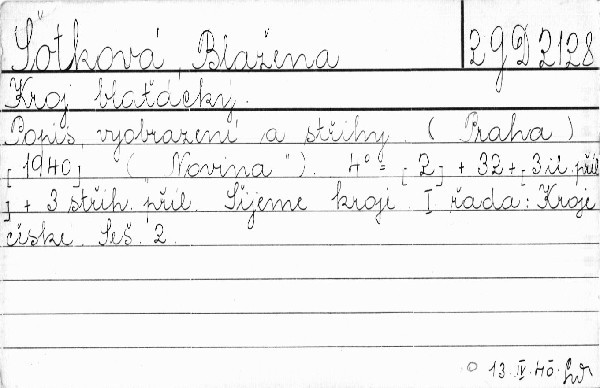 Šotková, Blažena 29 D 2128
Kroj blaťácký.
Popis, vyobrazení a střihy. (Praha)
[1940] (Novina"). 4° = [2] + 32 + [3 il. příl.
] + 3 střih. příl. Šijeme kroji. I. řada: Kroje
české. Seš. 2.
13. IV. 40.